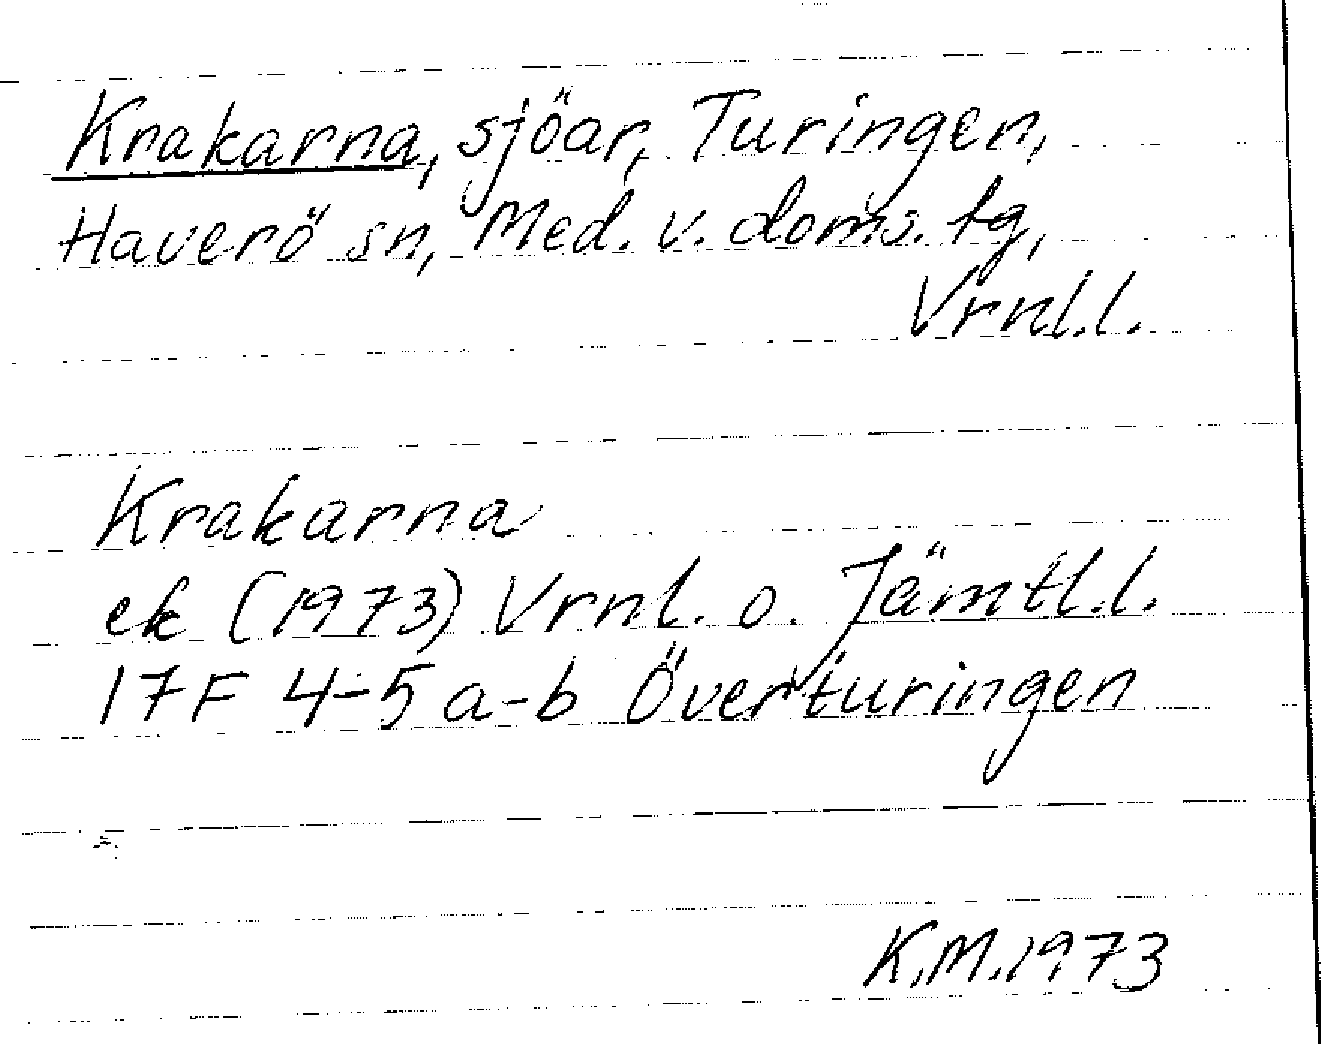 Krakarna, sjöar, Turingen,
Haverö sn, Med. v. doms. tg,
Vrnl.l.
Krakarna
ek (1973) Vrnl. o. Jämtl.l.
17F 4-5 a-b Överturingen
K.M.1973